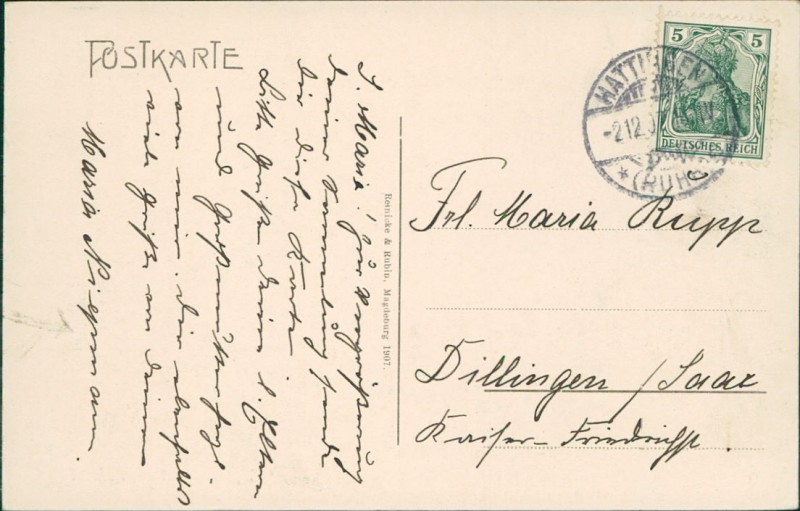 POSTKARTE
L. Maria! Zur Vergrößerung
deiner Sammlung sende
dir diese Karte.
Bitte grüße deine l. Eltern
und Großmutter herzl.
von mir. Dir ebenfalls
viele Grüße von deiner
Maria
Reinicke & Rubin, Magdeburg 1907.
5 5
DEUTSCHES REICH
HATTINGEN
-2.12.
*(RUHR
Frl. Maria Rupp
Dillingen / Saar
Kaiser-Friedrichst